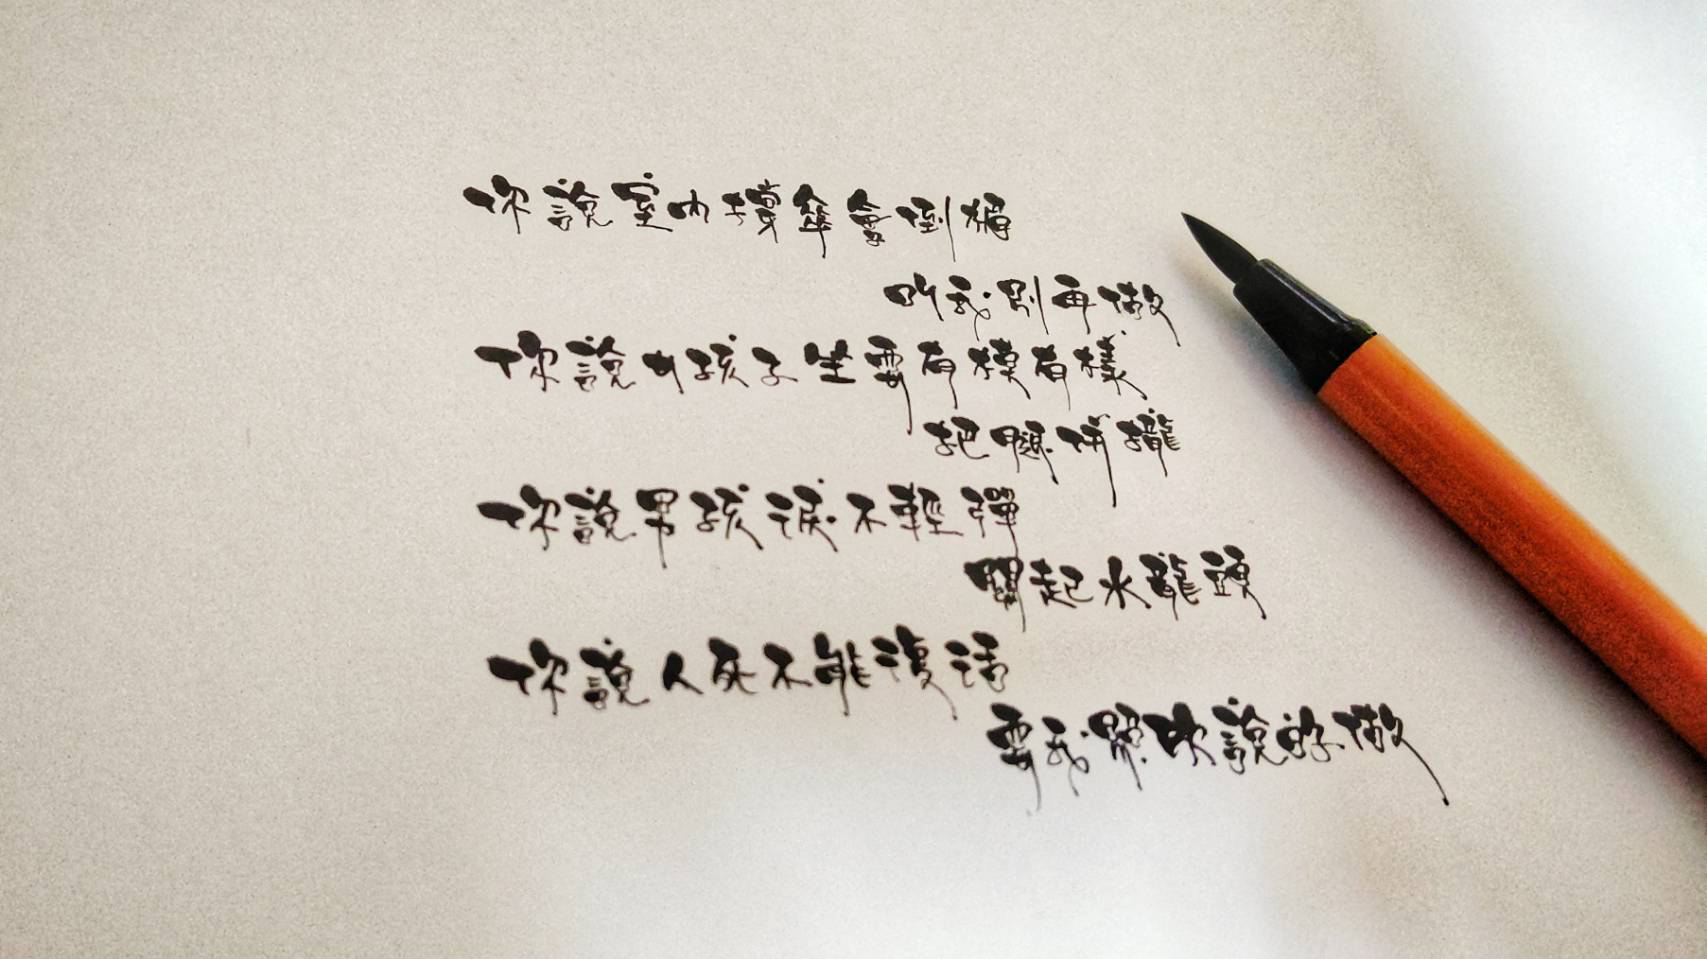 你說室內撐傘會倒楣
叫我別再做
你說女孩子坐要有模有樣
把腿併攏
你說男孩淚不輕彈
關起水龍頭
你說人死不能復活
要我照你說的做